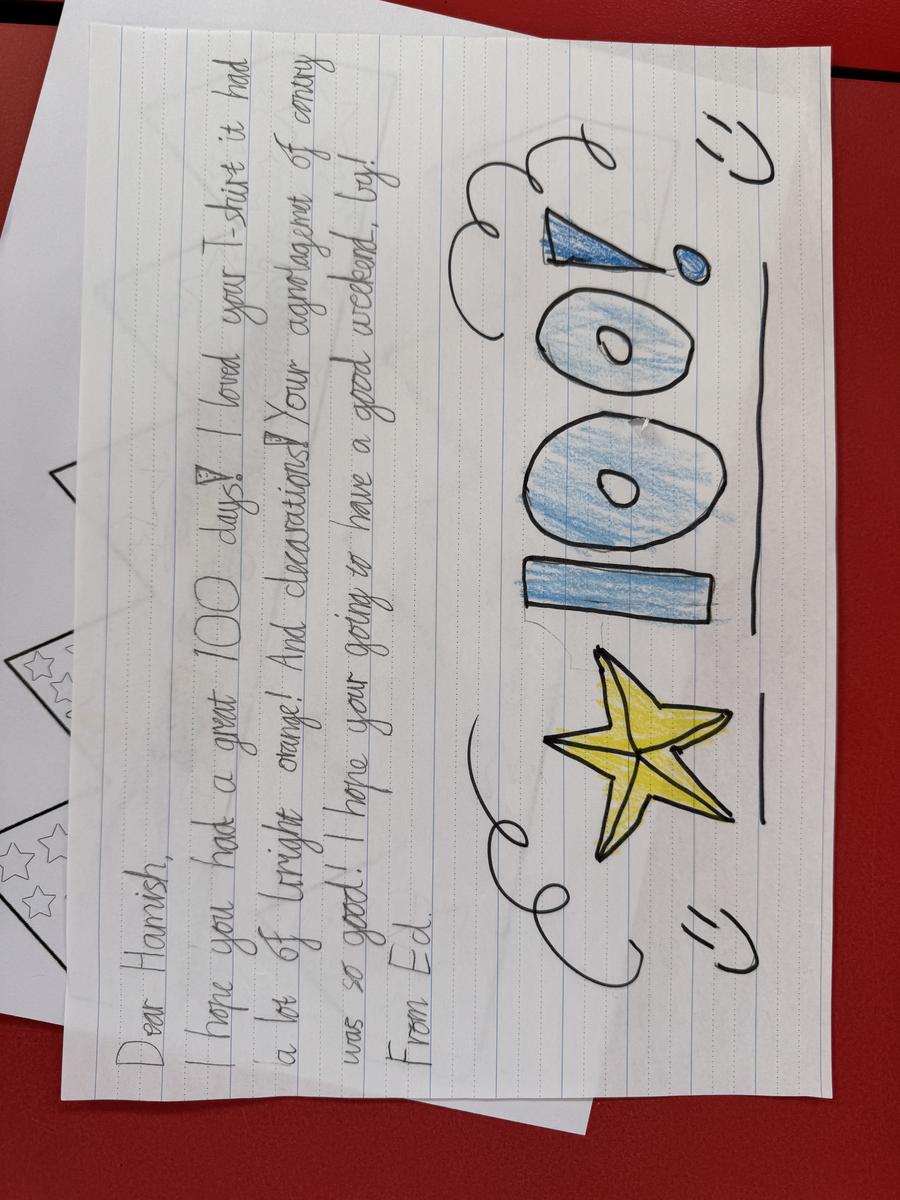 Dear Hamish,
I hope you had a great 100 days! I loved your T-shirt it had
a lot of bright orange! And decarations! Your agnolagemt of contry
was so good! I hope your going to have a good weekend, by!
From Ed.
100!